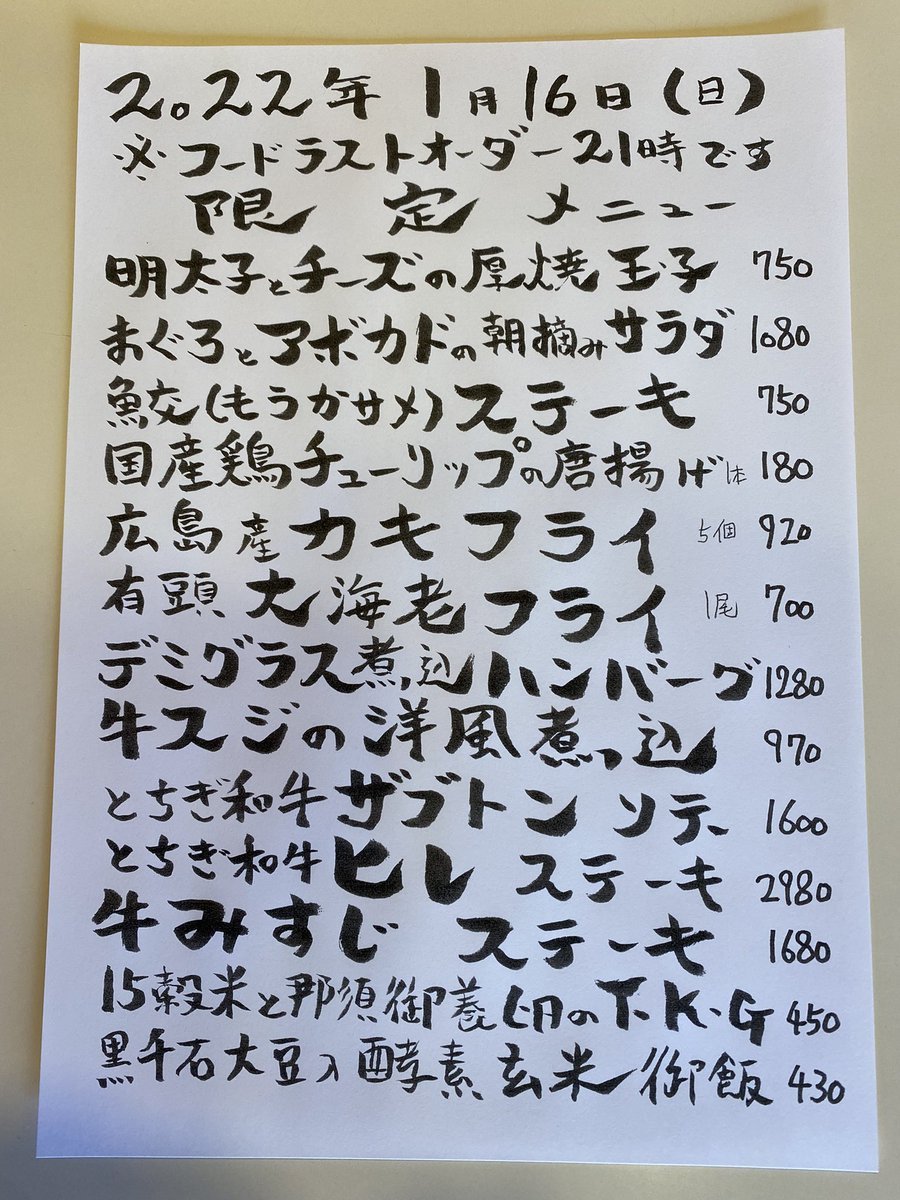 2022年 1月16日(日)
※フードラストオーダー21時です
限定メニュー
明太子とチーズの厚焼玉子 750
まぐろとアボカドの朝摘みサラダ 1080
鮫(もうかサメ)ステーキ 750
国産鶏チューリップの唐揚げ 1本 180
広島産カキフライ 5個 920
有頭大海老フライ 1尾 700
デミグラス煮込ハンバーグ 1280
牛スジの洋風煮っ込 970
とちぎ和牛ザブトンソテー 1600
とちぎ和牛ヒレステーキ 2980
牛みすじステーキ 1680
15穀米と那須御養卵のT.K.G 450
黒千石大豆入酵素玄米御飯 430